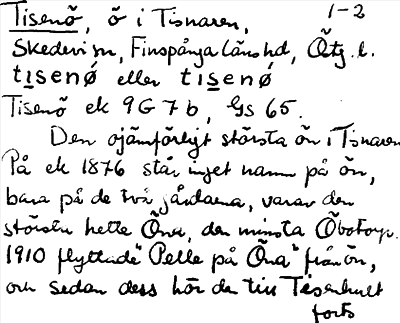 Tisenö, ö i Tisnaren, 1-2
Skedevi sn, Finspånga läns hd, Östg. l.
tisenǿ eller tisenǿ
Tisenö ek 9G 7b, Gs 65.
Den ojämförligt största ön i Tisnaren
På ek 1876 står inget namn på ön,
bara på de två gårdarna, varav den
största hette Öna, den minsta Öbotorp.
1910 flyttade "Pelle på Öna" från ön,
och sedan dess hör den till Tisenhult
forts